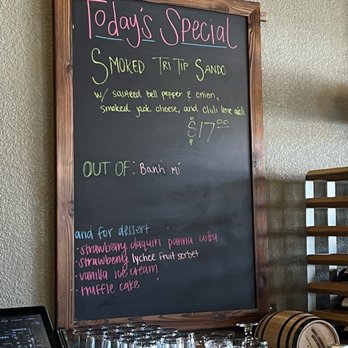 Today's Special
Smoked Tri Tip Sando
w/ sauteed bell pepper & onion,
smoked jack cheese, and chili lime aioli
$17.00
OUT OF: Banh mi
and for dessert
- strawberry daquiri panna cotta
- strawberry lychee fruit sorbet
- vanilla ice cream
- truffle cake